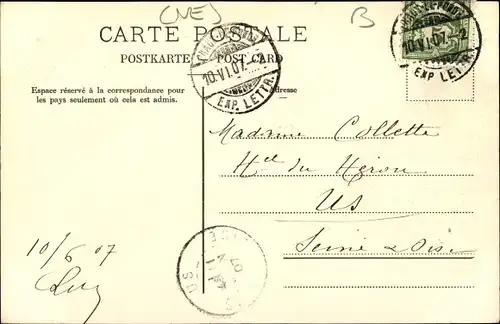 (NE)
B
CARTE POSTALE
POSTKARTE
POST CARD
10.VI.07.
EXP. LETTR.
10.VI.07.–2
EXP. LETTR.
Espace réservé à la correspondance pour
les pays seulement où cela est admis.
Adresse
Madame Collette
Hel du Héron
US
Seine & Oise
10/6 07